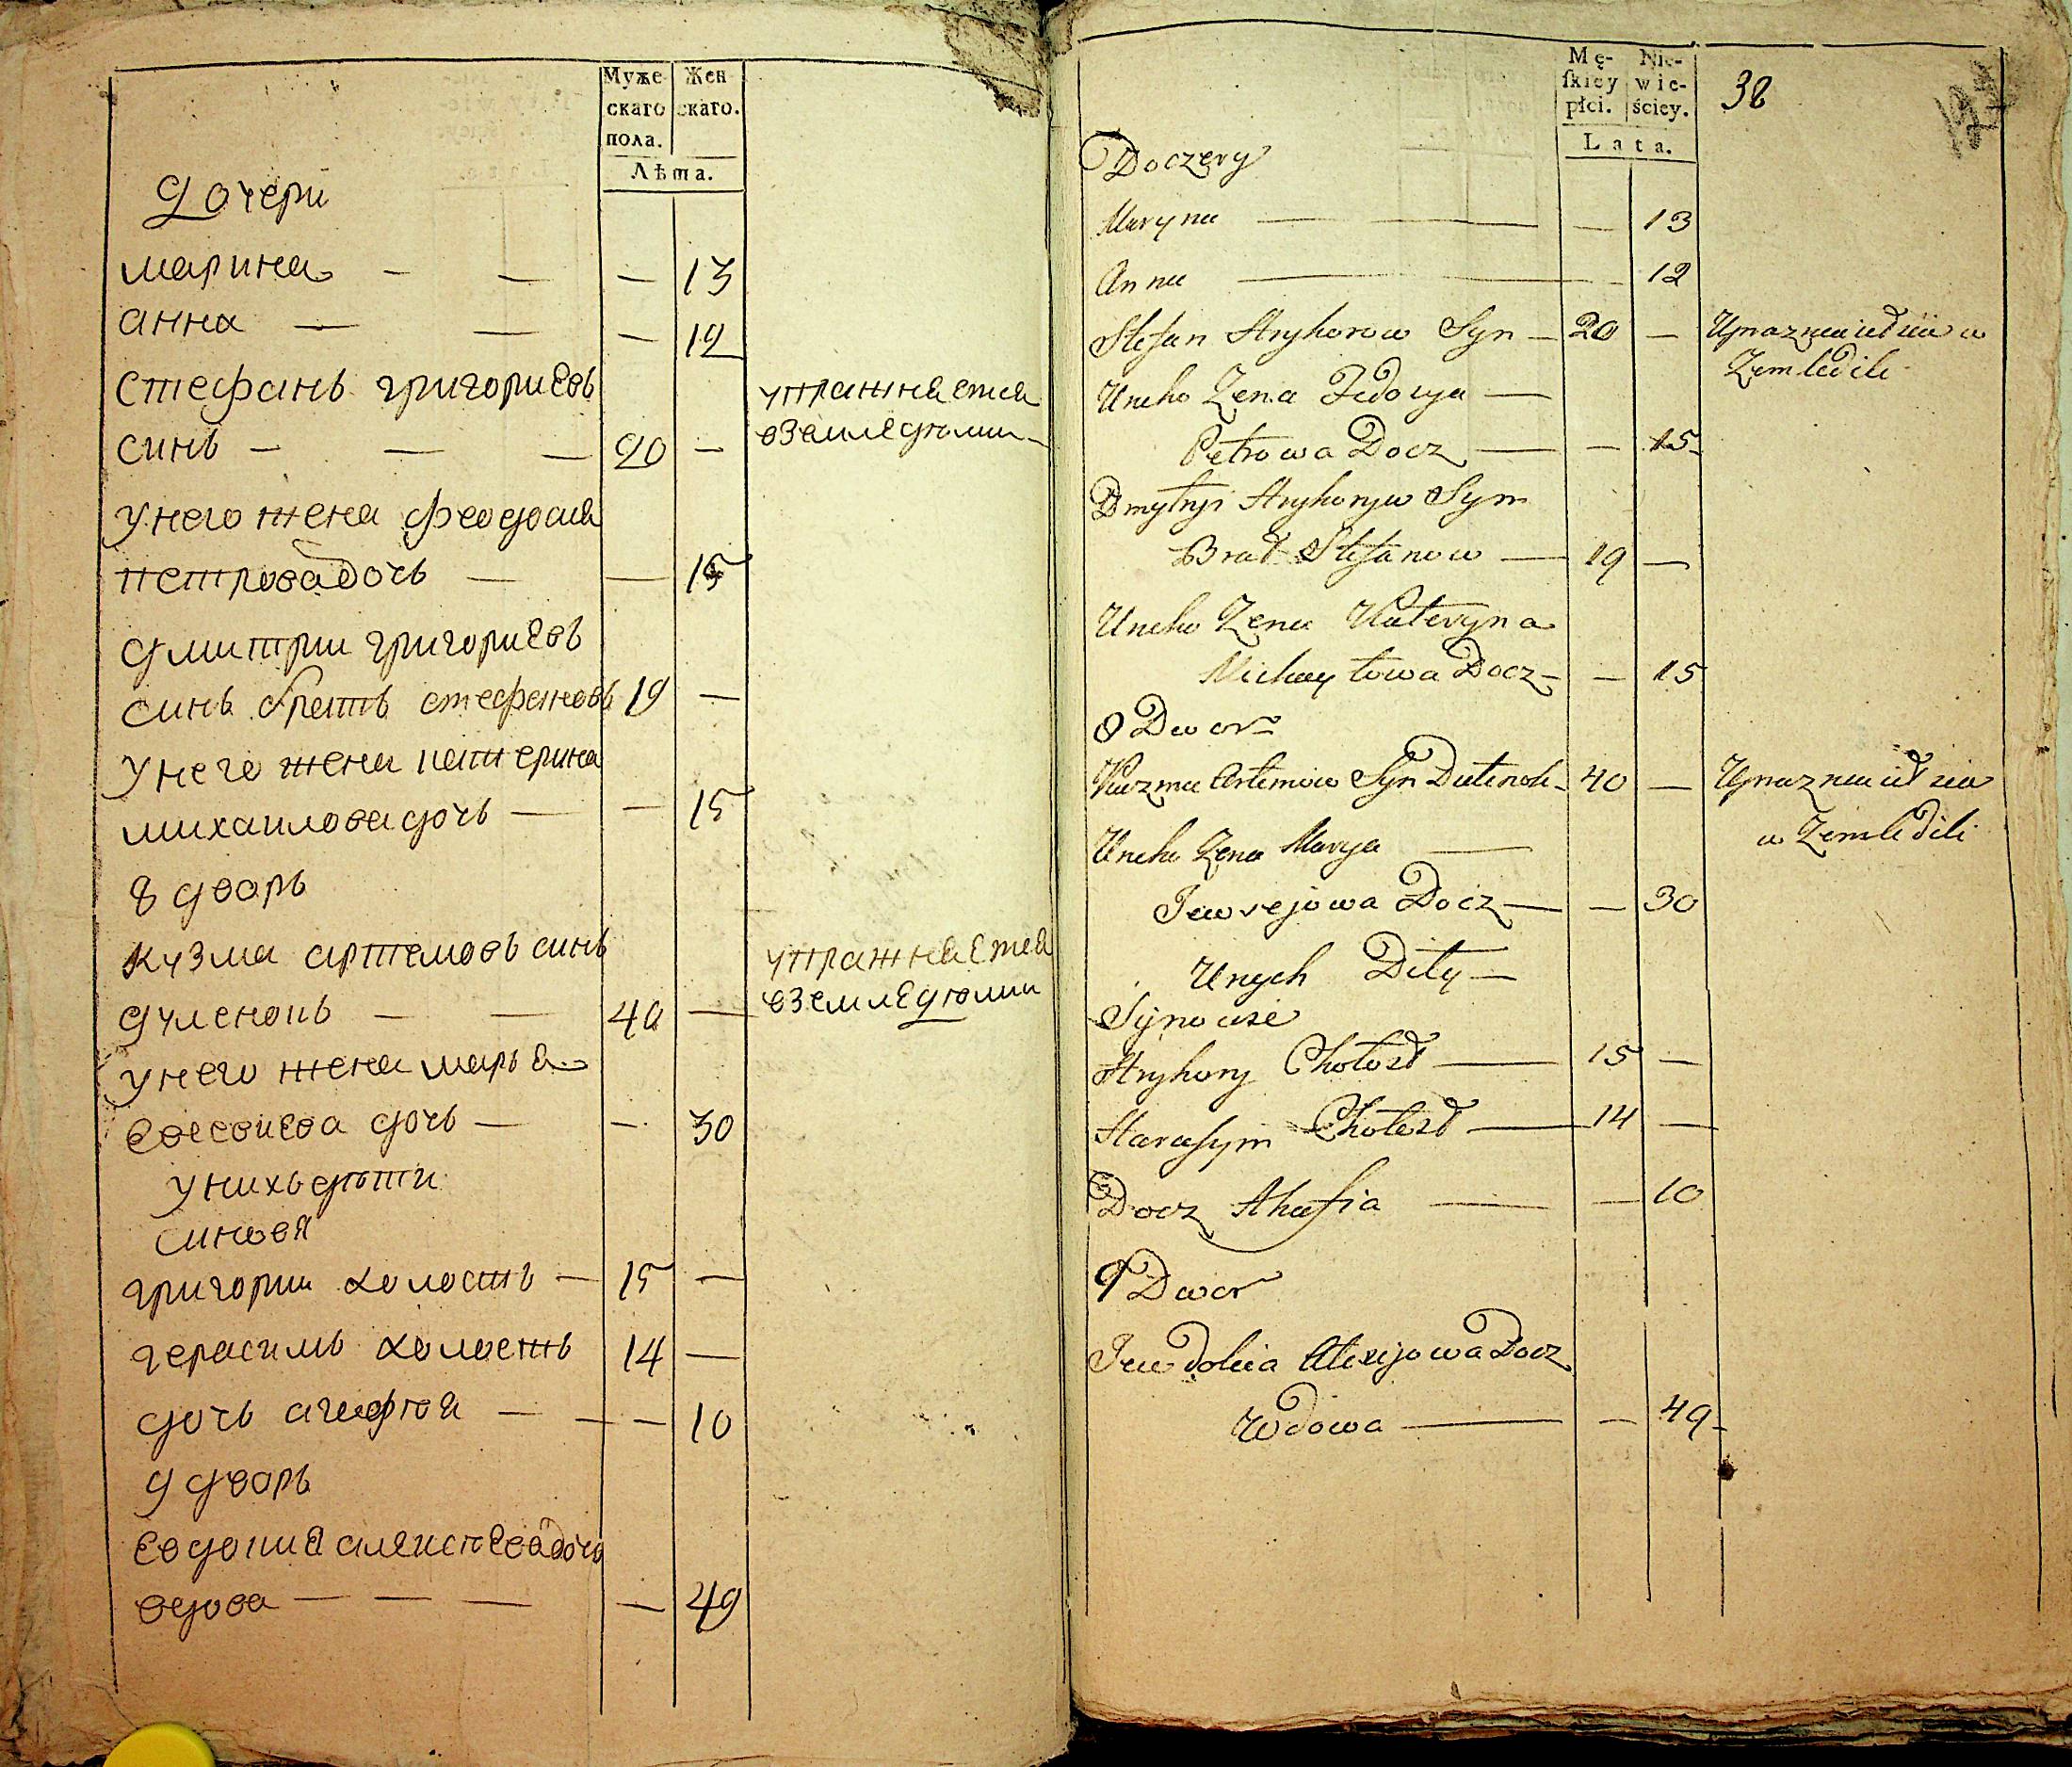 Муже
скаго
пола.
Жен
скаго.
Лѣта.
дочери
марина — — — 13
анна — — — 12
стефанъ григориевъ
синъ — — — 20 —
упражняется
вземледюлии
унего жена феодосия
петровадочь — — 15
дмитрии григориевъ
синъ братъ стефановъ 19 —
унего жена катерина
михаиловадочь — — 15
8 дворъ
кузма артемовъ синъ
дуленокъ — — 40 —
упражняется
вземледюлии
унего жена марья
евсевиева дочь — — 30
унихъ дѣти
синовя
григории холостъ — 15 —
герасимъ холостъ 14 —
дочь агафия — — — 10
9 дворъ
евдокия алексѣевадочь
вдова — — — — 49
Mę-
ſkiey
płci.
Nie-
wie-
ściey.
Lata.
38
Doczery
Maryna — — — 13
Anna — — 12
Stefan Hryhorow Syn — 20 — Uprazniaiet sia w
Zemledili
Uneho Zena Fedosya —
Petrowa Docz — — 15
Dmytryi Hryhoryw Syn
Brat Stefanow — 19 —
Uneho Zena Kateryna
Michayłowa Docz — — 15
8 Dwor
Kuzma Artemow Syn Dulenok — 40 — Uprazniaiet sia
w Zemledili
Uneho Zena Marya —
Jewsejowa Docz — — 30
Unych Dity —
Synowie
Hryhory Chołost — 15 —
Harasym Chołost — 14 —
Docz Ahafia — — 10
9 Dwor
Jewdokia Alexijowa Docz
Wdowa — — 49